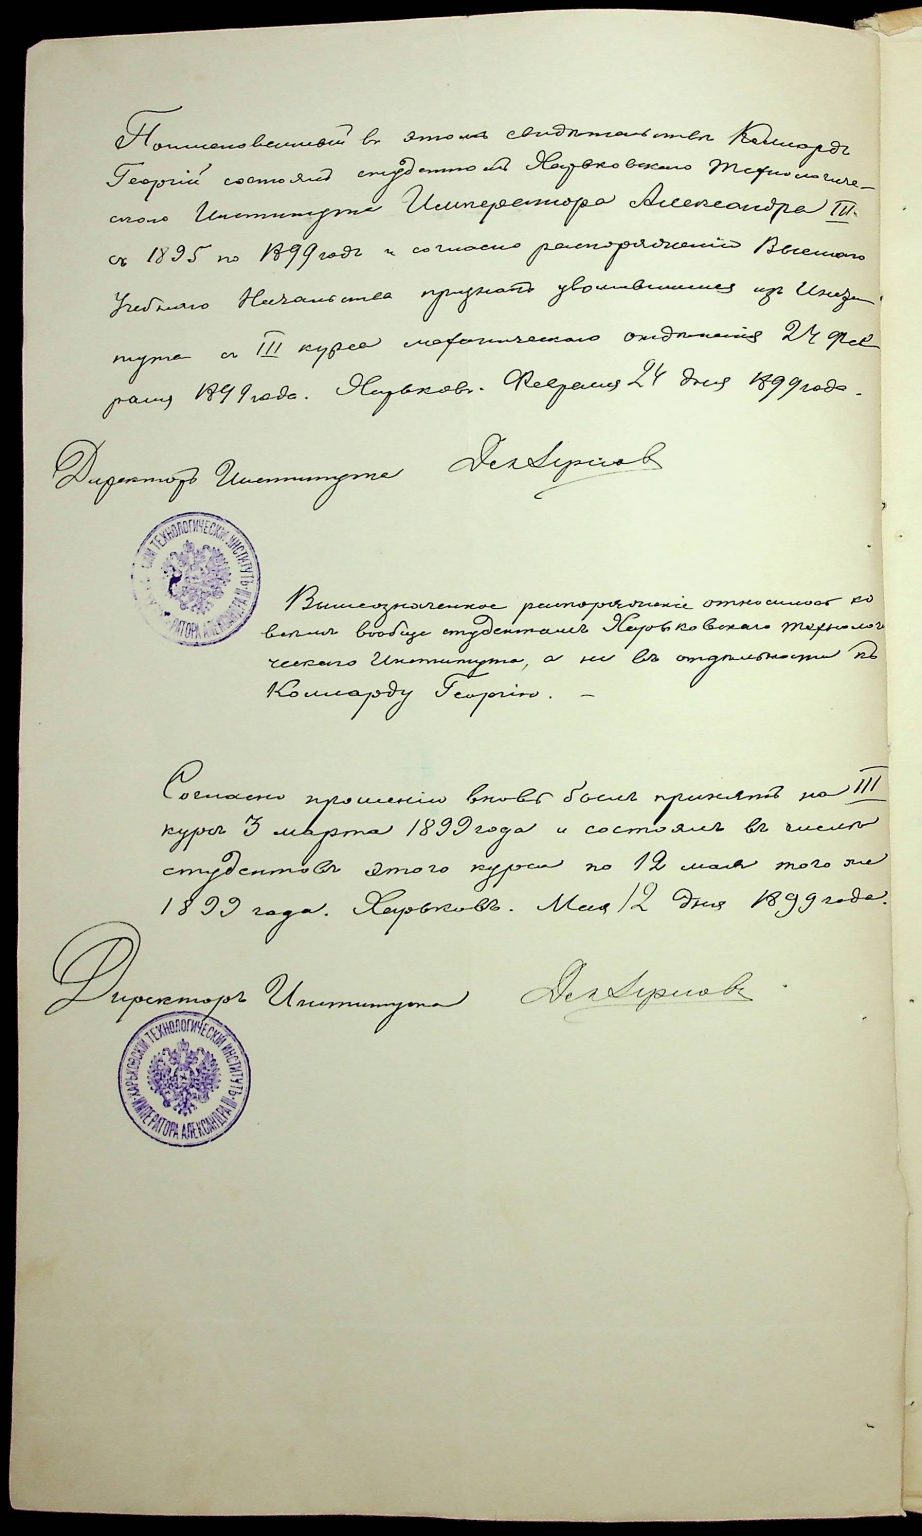 Поименованный въ этомъ свидѣтельствѣ Коллардъ
Георгій состоялъ студентомъ Харьковскаго Технологиче-
скаго Института Императора Александра III.
съ 1895 по 1899 годъ и согласно распоряженію Высшаго
Учебнаго Начальства признанъ уволившимся изъ Инсти
тута съ III курса механическаго отдѣленія 24 Фев
раля 1899 года. Харьковъ. Февраля 24 дня 1899 года.
Директоръ Института
СКІЙ ТЕХНОЛОГИЧЕСКІЙ ИНСТИТУТЪ
РАТОРА АЛЕКСАНДРА III
Вышеозначенное распоряженіе относилось ко
всѣмъ вообще студентамъ Харьковскаго Технологи
ческаго Института, а не въ отдѣльности къ
Колларду Георгію. –
Согласно прошенію вновь былъ принятъ на III
курсъ 3 марта 1899 года и состоялъ въ числѣ
студентовъ этого курса по 12 мая того же
1899 года. Харьковъ. Мая 12 дня 1899 года.
Директоръ Института
ХАРЬКОВСКІЙ ТЕХНОЛОГИЧЕСКІЙ ИНСТИТУТЪ
ИМПЕРАТОРА АЛЕКСАНДРА III